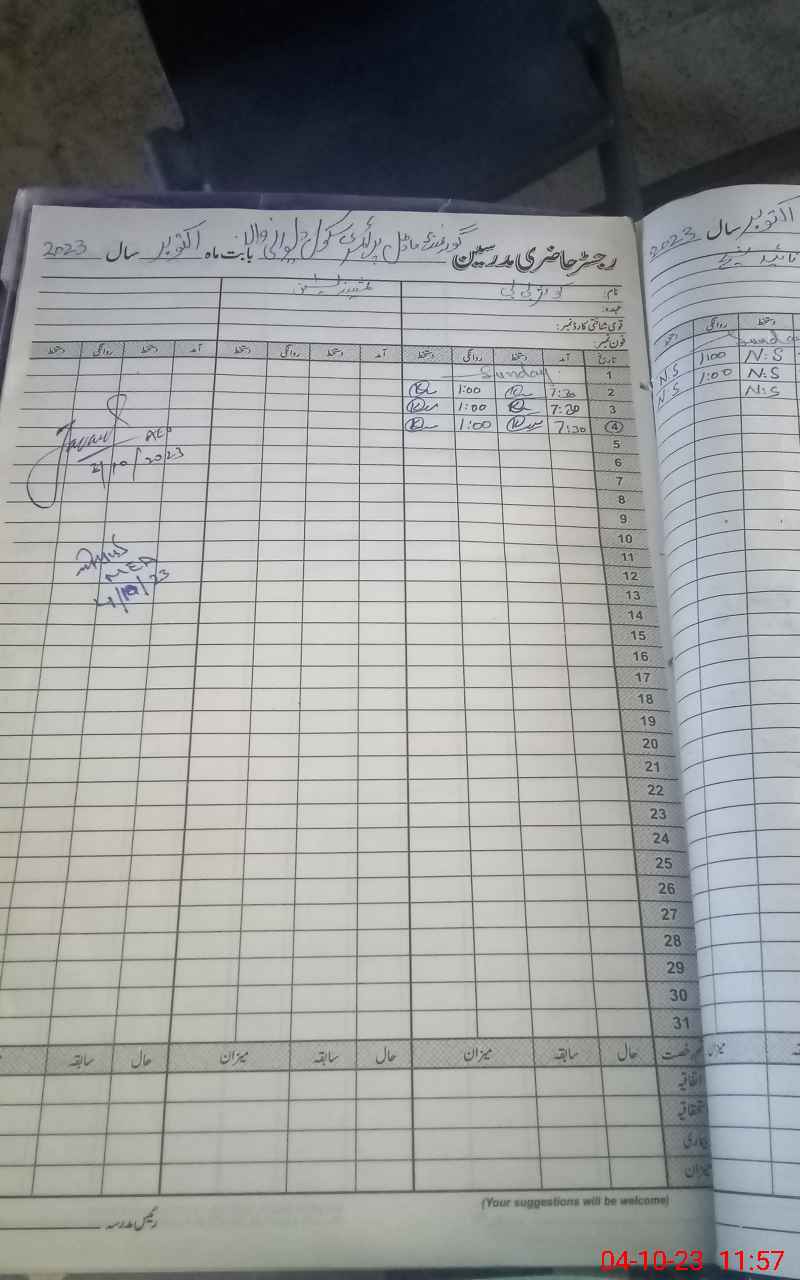 رجسٹر حاضری مدرسین گورنمنٹ ماڈل پرائمری سکول والا بابت ماہ اکتوبر سال 2023
نام: کوثر بی بی
عہدہ:
قومی شناختی کارڈ نمبر:
فون نمبر:
تاریخ آمد دستخط روانگی دستخط آمد دستخط روانگی دستخط آمد دستخط روانگی دستخط
1 Sunday
2 7:30 1:00
3 7:30 1:00
4 7:30 1:00
5
6
7
8
9
10
11
12
13
14
15
16
17
18
19
20
21
22
23
24
25
26
27
28
29
30
31
AEO
2/10/2023
MEA
4/10/23
رخصت حال سابقہ میزان حال سابقہ میزان حال سابقہ
اتفاقیہ
استحقاقیہ
بیماری
میزان
(Your suggestions will be welcome)
رئیس مدرسہ
اکتوبر سال 2023
دستخط روانگی دستخط
Sunday
N.S 1:00 N.S
N.S 1:00 N.S
N.S
میزان
04-10-23 11:57